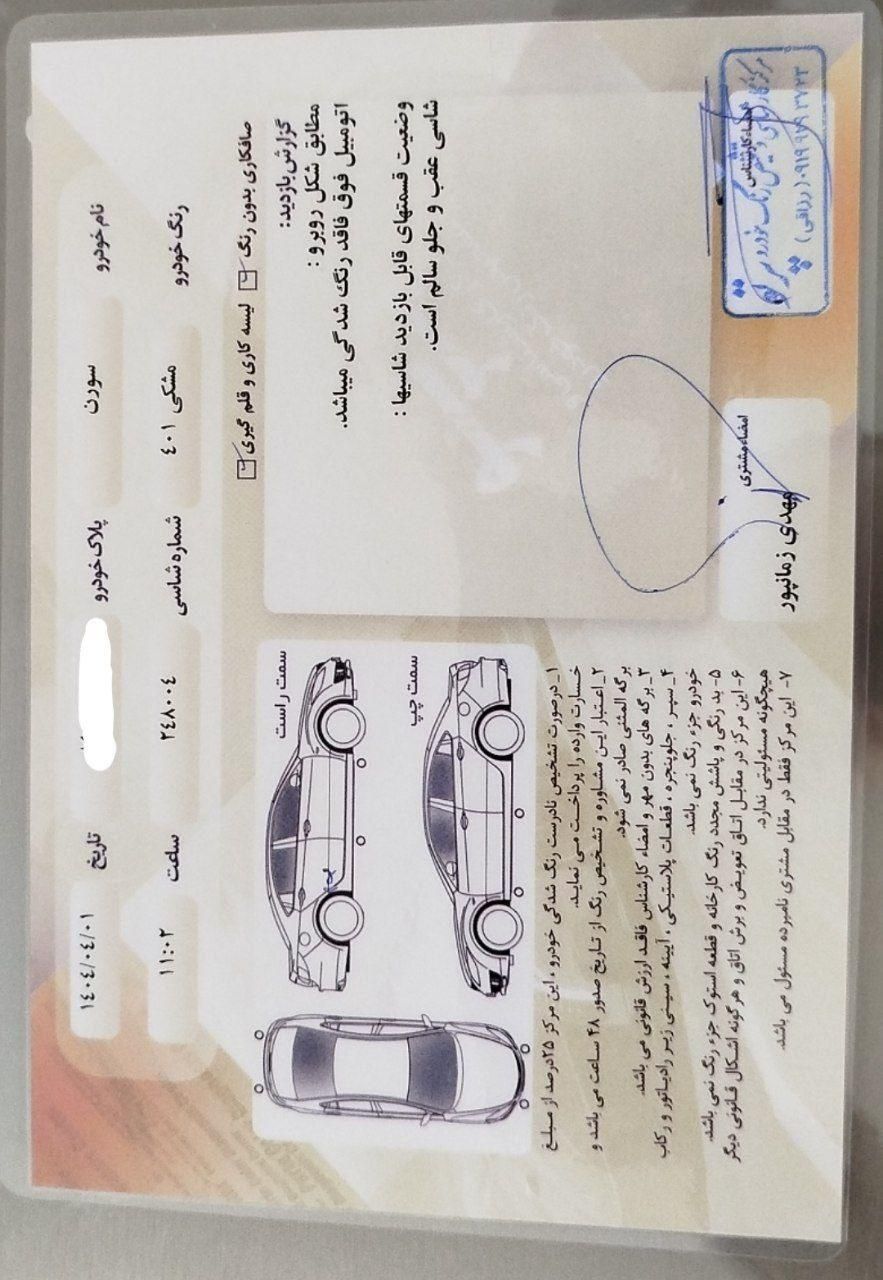 نام خودرو سورن پلاک خودرو تاریخ ۱۴۰۴/۰۴/۰۱
رنگ خودرو مشکی ۴۰۱ شماره شاسی ۲۴۸۰۰۴ ساعت ۱۱:۰۲
صافکاری بدون رنگ لیسه کاری و قلم گیری
گزارش بازدید:
مطابق شکل روبرو :
اتومبیل فوق فاقد رنگ شدگی میباشد.
وضعیت قسمتهای قابل بازدید شاسیها :
شاسی عقب و جلو سالم است.
سمت راست
سمت چپ
۱_ درصورت تشخیص نادرست رنگ شدگی خودرو ، این مرکز ۲۵درصد از مبلغ
خسارت وارده را پرداخت می نماید.
۲_ اعتبار این مشاوره و تشخیص رنگ از تاریخ صدور ۴۸ ساعت می باشد و
برگه المثنی صادر نمی شود.
۳_ برگه های بدون مهر و امضاء کارشناس فاقد ارزش قانونی می باشد.
۴_ سپر ، جلوپنجره ، قطعات پلاستیکی ، آیینه ، سینی زیر رادیاتور و رکاب
خودرو جزء رنگ نمی باشد.
۵- بد رنگی و پاشش مجدد رنگ کارخانه و قطعه استوک جزء رنگ نمی باشد.
۶- این مرکز در مقابل اتاق تعویض و برش اتاق و هرگونه اشکال قانونی دیگر
هیچگونه مسئولیتی ندارد.
۷- این مرکز فقط در مقابل مشتری نامبرده مسئول می باشد.
امضاء مشتری
مهدی زمانپور
امضاء کارشناس
مرکز کارشناسی و تشخیص رنگ خودرو
(رزاقی) ۰۹۱۹ ۹۷۹ ۳۷۲۳